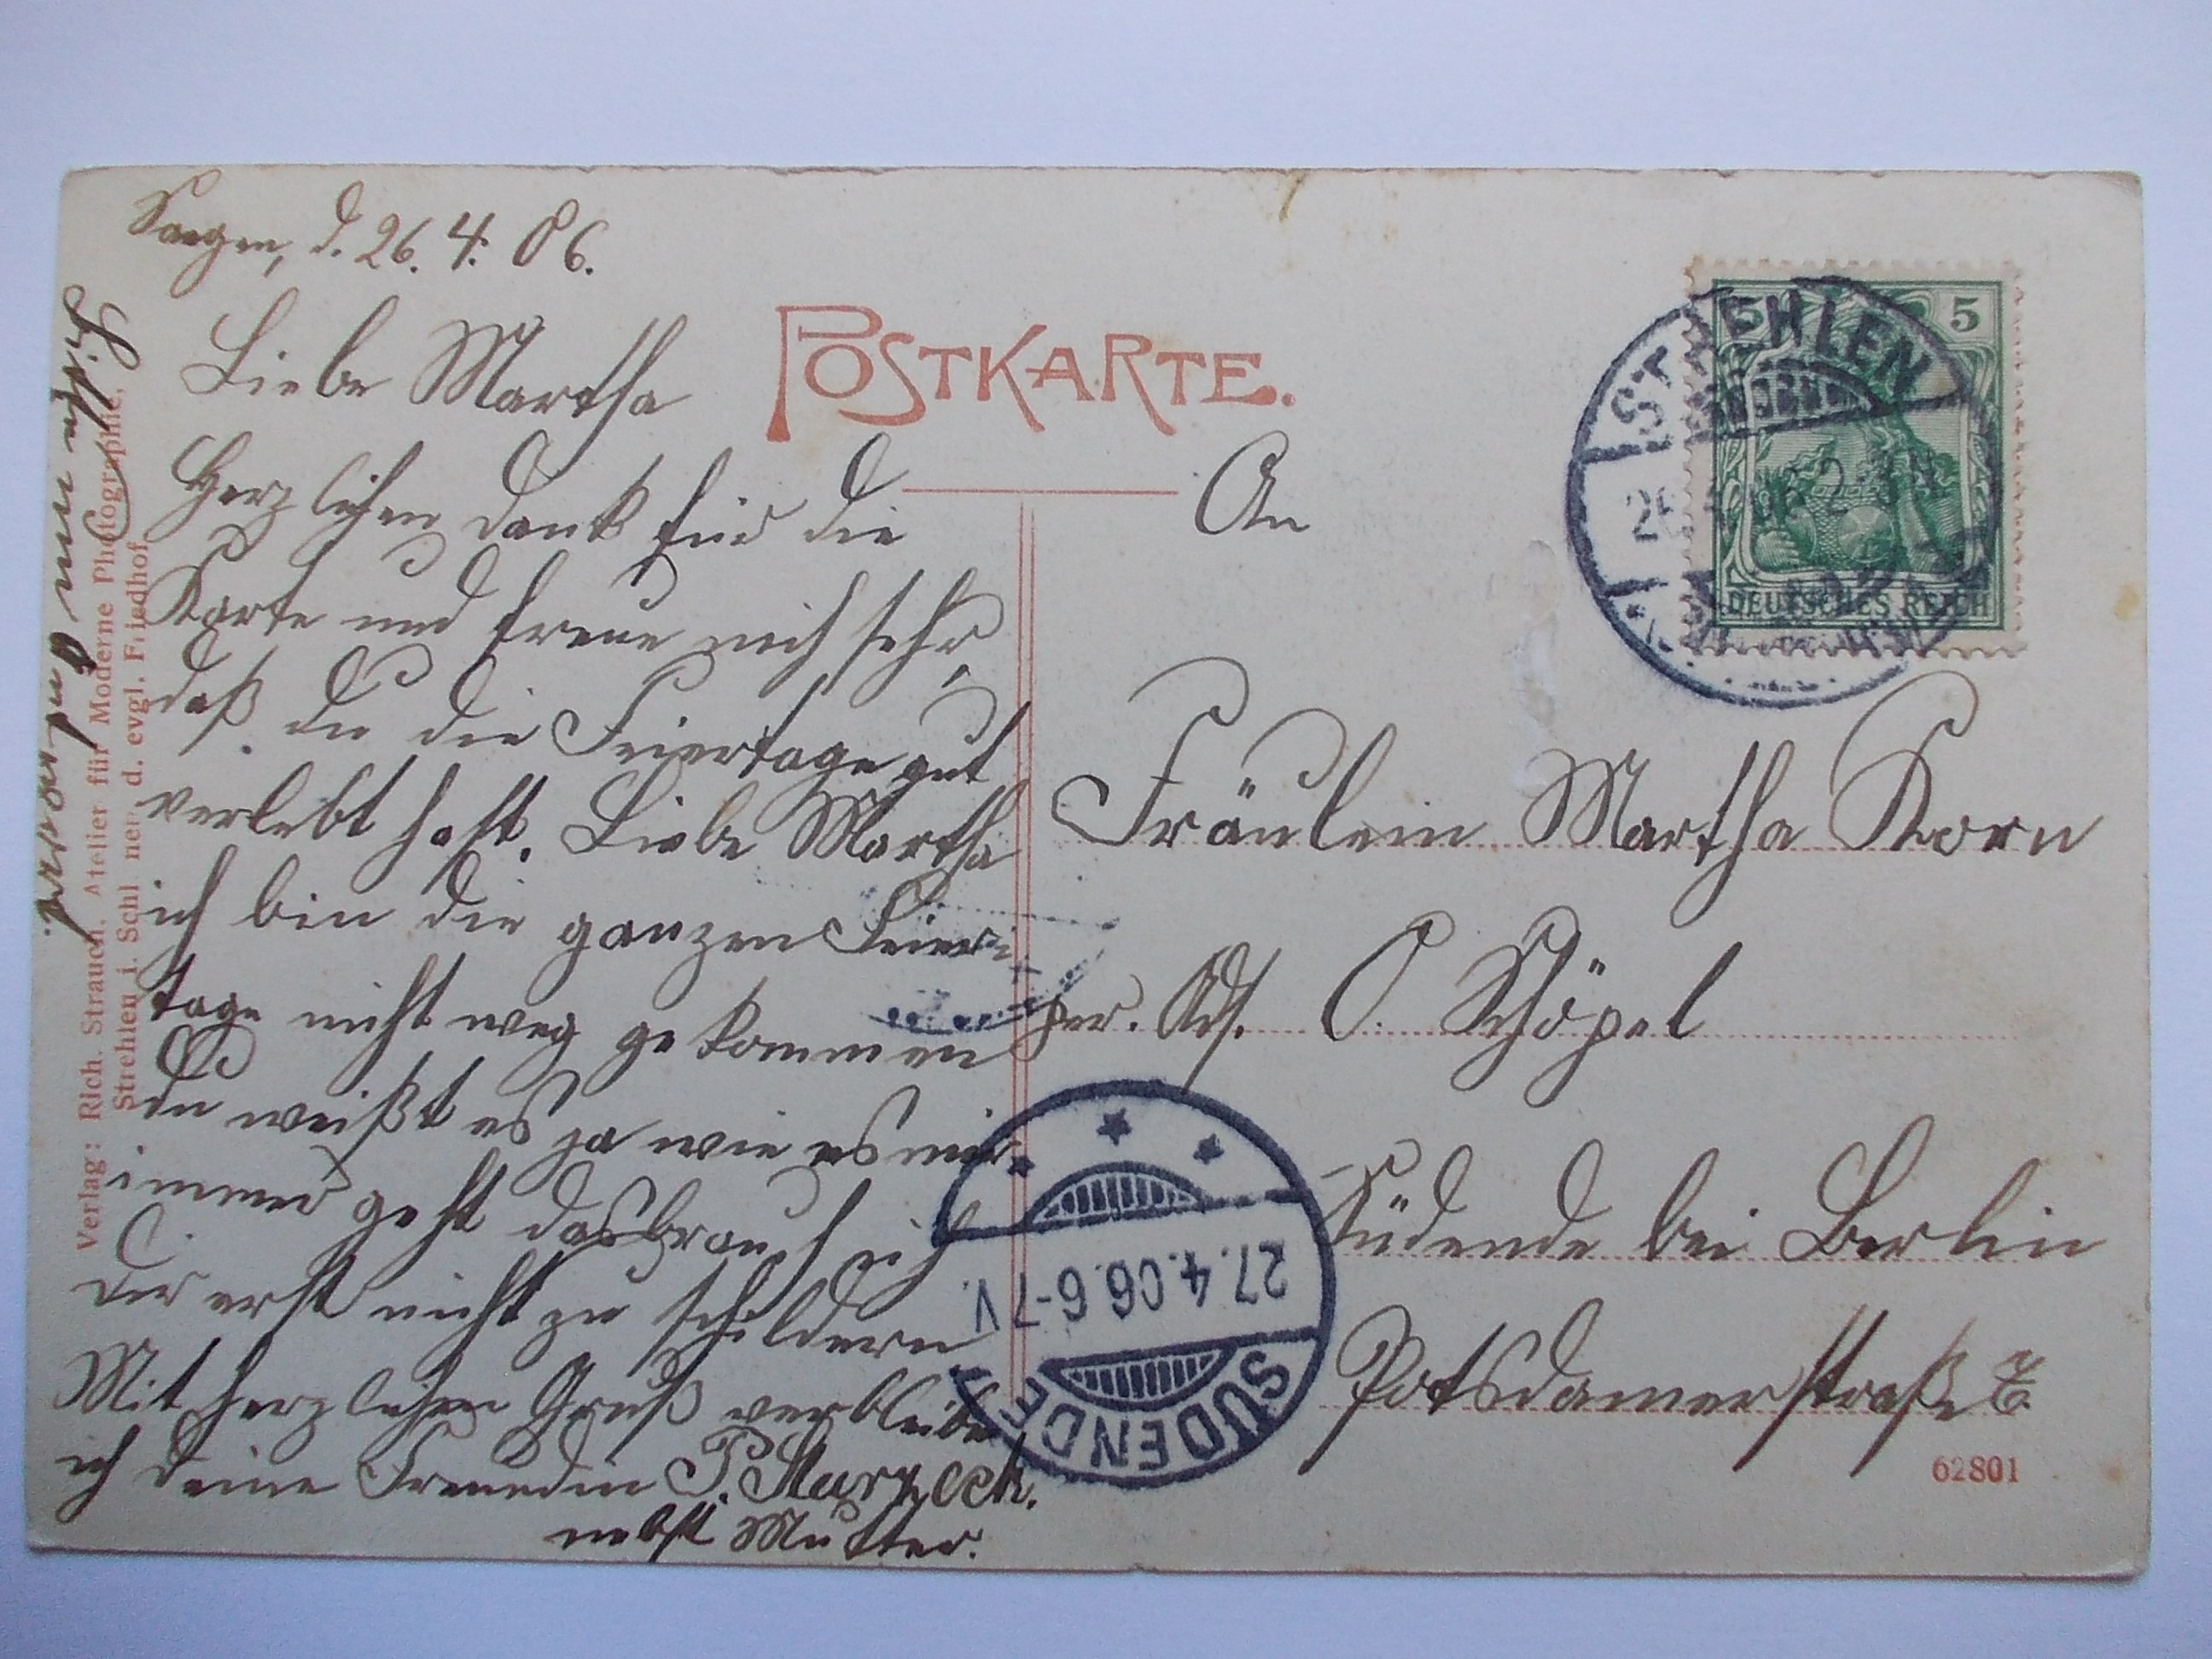 Saegen, d. 26. 4. 06.
Liebe Martha
Herzlichen Dank für die
Karte und freue mich sehr,
daß Du die Feiertage gut
verlebt hast. Liebe Martha
ich bin die ganzen Feier-
tage nicht weg gekommen
Du weißt es ja wie es mir
immer geht das brauch ich
Dir erst nicht zu schildern
Mit herzlichen Gruß verbleibe
ich deine Freundin
nebst Mutter.
Bitte um Antwort.
Verlag: Rich. Strauch, Atelier für Moderne Photographie,
Strehlen i. Schl. neb. d. evgl. Friedhof
POSTKARTE.
An
Fräulein Martha Korn
per. Ads. O. Schöpel
Südende bei Berlin
Potsdamerstraße
62801
5 5
DEUTSCHES REICH
STREHLEN
SÜDENDE
27.4.06.6-7V.